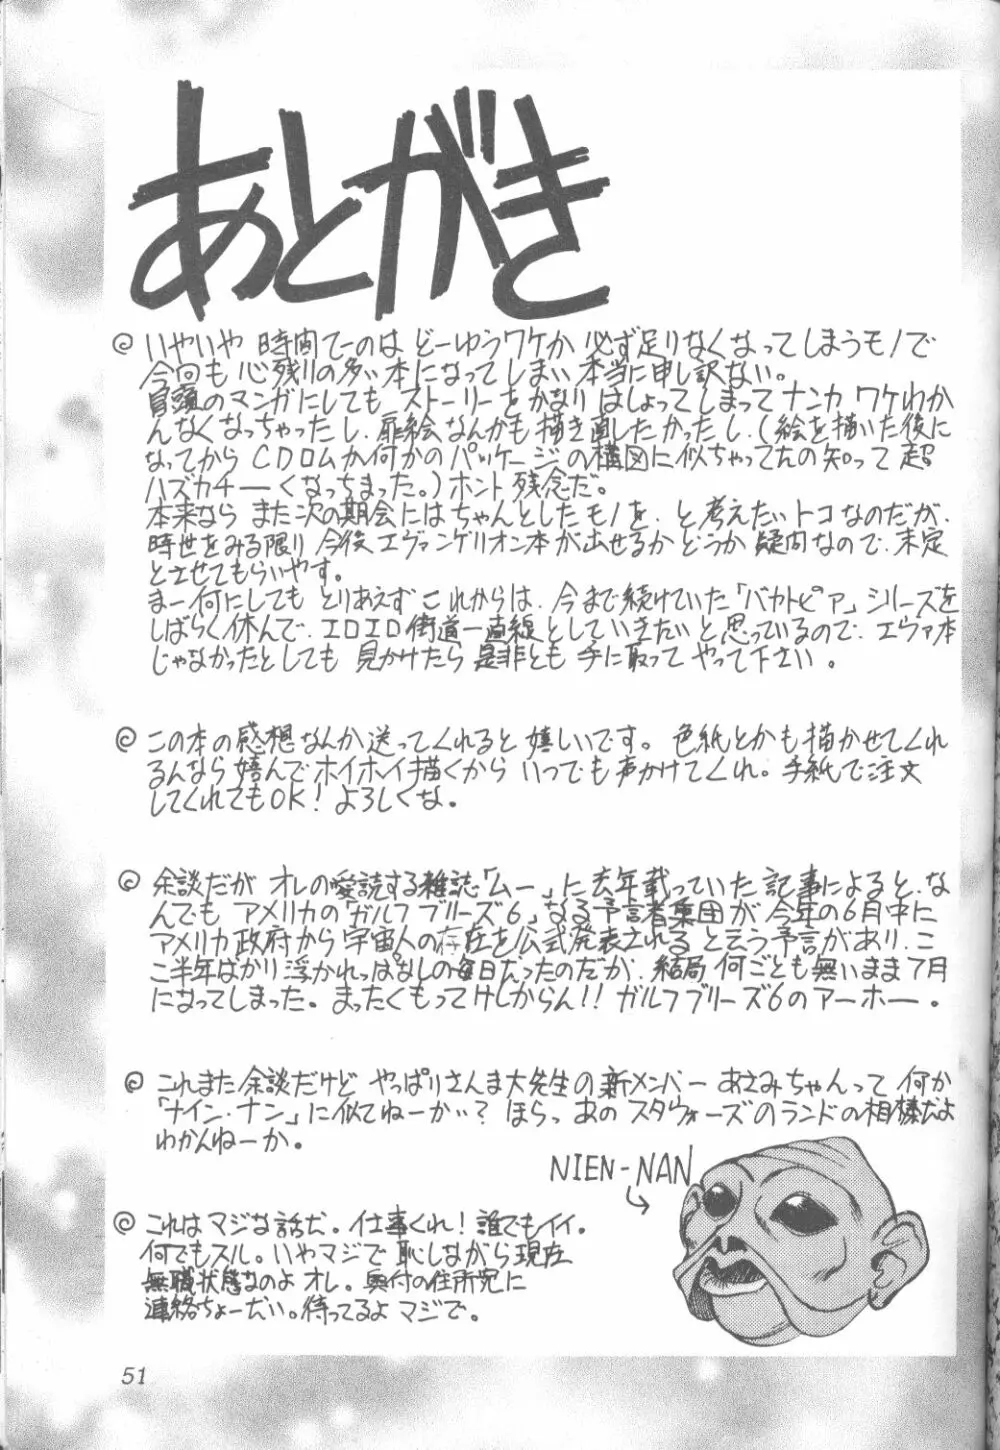 あとがき
いやいや 時間てーのは どーゆうワケか 必ず足りなくなってしまうモノで
今回も 心残りの多い本になってしまい 本当に申し訳ない。
冒頭のマンガにしても ストーリーをかなりはしょってしまって ナンカ ワケわか
んなくなっちゃったし、扉絵なんかも描き直したかったし、(絵を描いた後に
なってから CDロムか何かのパッケージの構図に似ちゃってたの知って 超
ハズカチーくなっちまった。) ホント 残念だ。
本来なら また次の期会にはちゃんとしたモノを、と考えたいトコなのだが、
時世をみる限り 今後エヴァンゲリオン本が出せるかどうか 疑問なので、未定
とさせてもらいやす。
まー何にしても とりあえず これからは、今まで続けていた「バカトピア」シリーズを
しばらく休んで、エロエロ街道一直線としていきたいと思っているので、エヴァ本
じゃなかったとしても 見かけたら 是非とも 手に取って やって下さい。
この本の感想なんか送ってくれると 嬉しいです。色紙とかも描かせてくれ
るんなら嬉んでホイホイ描くから いつでも声かけてくれ。手紙で注文
してくれてもOK! よろしくな。
余談だが オレの愛読する雑誌「ムー」に去年載っていた記事によると、な
んでも アメリカの「ガルフブリーズ6」なる予言者集団が 今年の6月中に
アメリカ政府から 宇宙人の存在を公式発表されると言う予言があり、こ
こ半年ばかり浮かれっぱなしの毎日だったのだが、結局 何ごとも無いまま7月
になってしまった。まったくもってけしからん!! ガルフブリーズ6のアーホー。
これまた余談だけど やっぱりさんま大先生の新メンバー あさみちゃんって 何か
「ナイン・ナン」に似てねーかい? ほらっ、あの スタウォーズのランドの相棒だよ
わかんねーか。
NIEN-NAN
これはマジな話だ。仕事くれ! 誰でもイイ。
何でもスル。いやマジで 恥しながら現在
無職状態なのよ オレ。奥付の住所宛に
連絡ちょーだい。待ってるよ マジで。
51